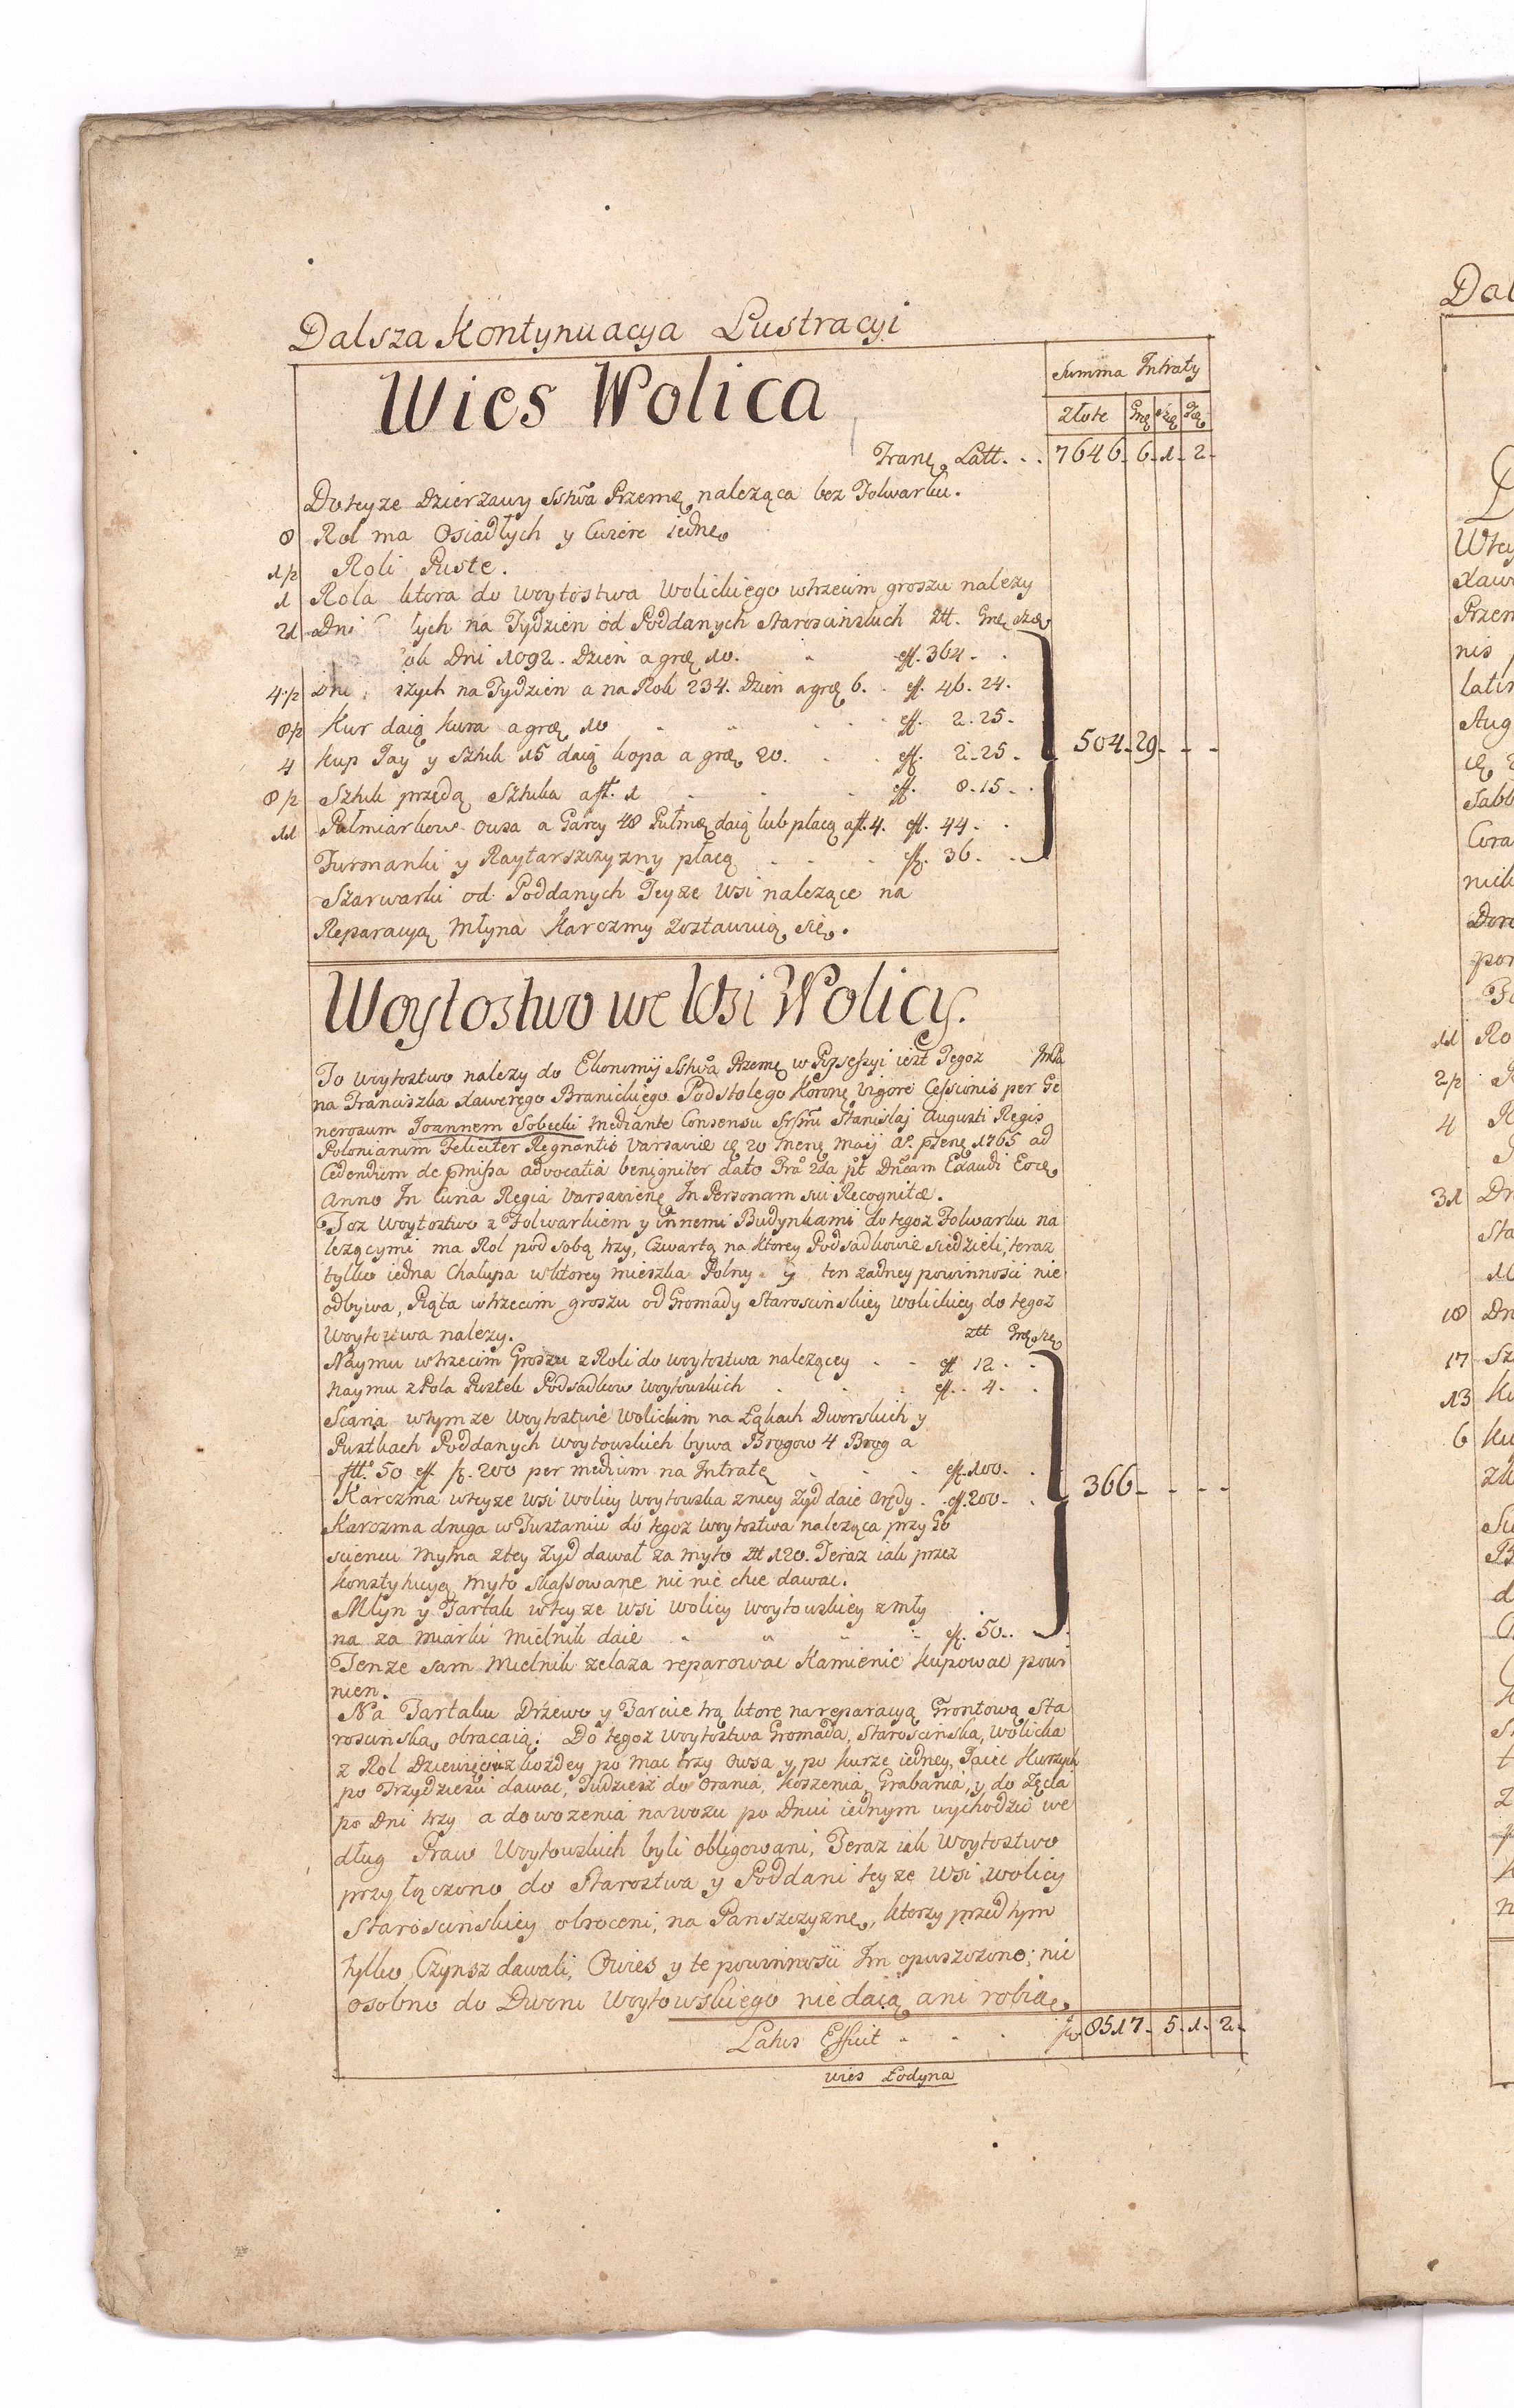 Dalsza Kontynuacya Lustracyi
Wies Wolica
Summa Intraty
Złote Grę Szę
Tranę Latt. . . 7646 - 6 - 1 - 2 -
Do teyze Dzierzawy Sstwa Przemę należąca bez Folwarku.
8 Rol ma Osiadłych y Cwierc iednę
1/2 Roli Puste.
1 Rola ktora do Woytostwa Wolickiego w trzecim groszu nalezy
21 Dni łych na Tydzien od Poddanych Staroscinskich Ztt. Grę Szę
Dni 1092. Dzien a grę 10. eff. 364 -
4 1/2 szych na Tydzien a na Rok 234. Dzien a grę 6. eff. 46. 24.
8 1/2 Kur daią kura a grę 10 eff. 2. 25 -
4 Kup Jay y Sztuk 15 daią kopa a grę 20. eff. 2. 25 -
8 1/2 Sztuk przędą Sztuka a ft. 1 eff. 8. 15 -
11 Pułmiarkow Owsa a Garcy 48 Pułmę daią lub płacą a ft. 4. eff. 44 -
Furmanki y Raytarszczyzny płacą eff. 36. -
504 - 29 - - -
Szarwarki od Poddanych Teyze Wsi nalezące na
Reparacyą Młyna Karczmy zostawuią się.
Woytostwo we Wsi Wolicy.
To Woytostwo nalezy do Ekonomij Sstwa Przemę w Possessyi iest Tegoz Jmsa
na Franciszka Xawerego Branickiego Podstolego Koronę Vigore Cessionis per Ge
nerosum Joannem Sobecki mediante Consensu Srssmi Stanislaj Augusti Regis
Poloniarum Feliciter Regnantis Varsaviæ 20 Mensę Maij Ao. psenę 1765 ad
Cedendum de pmissa advocatia benigniter dato Exaudi Eoię
Anno In Curia Regia Varsavienę In Personam sui Recognitæ.
Toz Woytostwo z Folwarkiem y innemi Budynkami do tegoz Folwarku na
lezącymi ma Rol pod sobą trzy, Czwartą na ktorey Podsadkowie siedzieli, teraz
tylko iedna Chałupa w ktorey mieszka Polny y ten zadney powinnosci nie
odbywa, Piąta w trzecim groszu od Gromady Staroscinskiey Wolickiey do tegoz
Woytostwa nalezy. ztt Grę Szę
Naymu w trzecim Groszu z Roli do Woytostwa nalezącey eff 12 -
Naymu z Pola Pustek Podsadkow Woytowskich eff. 4 -
Siana w tym ze Woytostwie Wolickim na Łąkach Dworskich y
Pustkach Poddanych Woytowskich bywa Brogow 4 Brog a
ftt. 50 eff. 200 per medium na Intratę eff. 100 -
Karczma w teyze Wsi Wolicy Woytowska z niey Zyd daie Arędy eff. 200 -
366 - - - -
Karczma druga w Pustaniu do tegoz Woytostwa naleząca przy Go
scincu Myma z tey Zyd dawał za myto Ztt 120. Teraz iak przez
konstytucyą Myto skassowane nic nie chce dawac.
Młyn y Tartak w teyze Wsi Wolicy Woytowskiey z mły
na za miarki Mielnik daie eff. 50.
Tenze sam Mielnik zelaza reparowac Kamienie kupowac powi
nien.
Na Tartaku Drzewo y Tarcice trą ktore na reparacyą Grontową Sta
roscinską obracaią. Do tegoz Woytostwa Gromada, Staroscinska, Wolicka
z Rol Dziewięciu z kozdey po Mac trzy Owsa y po kurze iedney, Jaiec kurzych
po Trzydziesci dawac, Tudziesz do Orania, koszenia, Grabania, y do Zęcia
po Dni trzy a do wozenia nawozu po Dniu iednym wychodzic we
dług Praw Woytowskich byli obligowani, Teraz iak Woytostwo
przyłączono do Starostwa y Poddani teyze Wsi Wolicy
Staroscinskiey obroceni, na Panszczyznę, ktorzy przed tym
tylko Czynsz dawali, Owies y te powinnosci Im opuszczono; nic
osobno do Dworu Woytowskiego nie daią ani robią.
Latus Efficit 8517 - 5 - 1 - 2 -
wies Łodyna